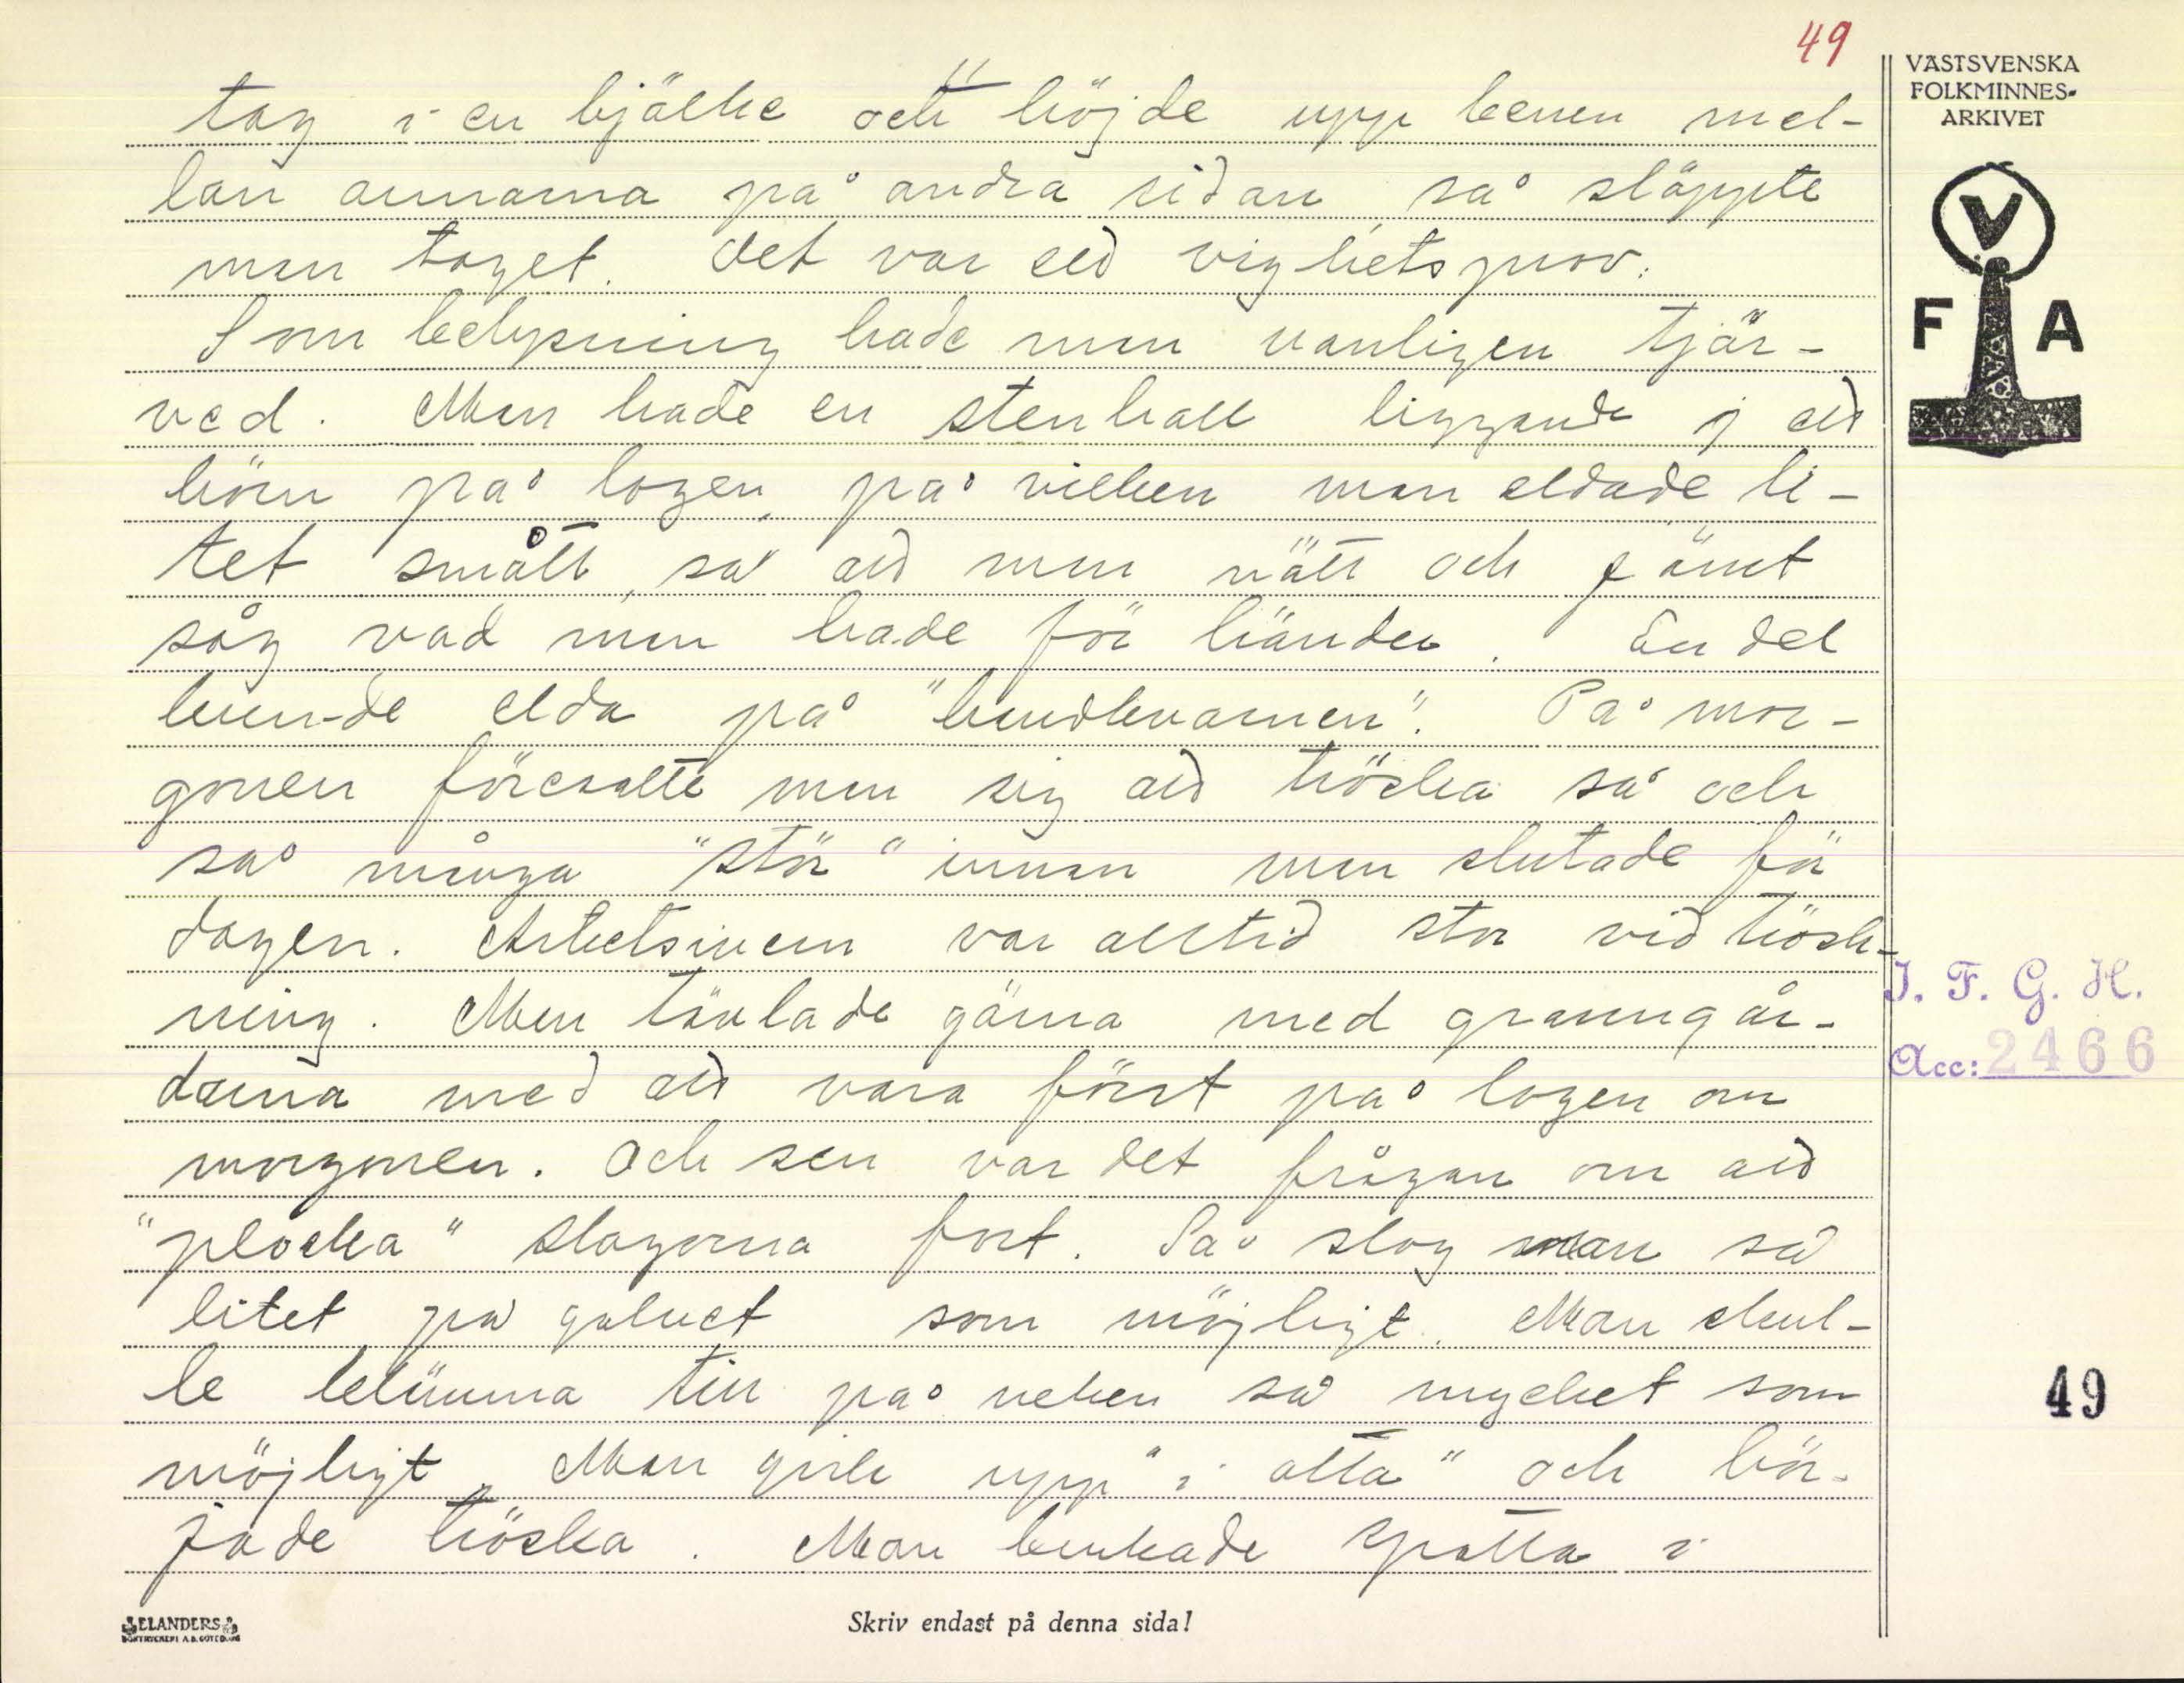 49
VÄSTSVENSKA
FOLKMINNES-
ARKIVET
V
F A
tag i en bjälke och höjde upp benen mel-
lan armarna på andra sidan, så släppte
man taget. Det var ett vighetsprov.
Som belysning hade man vanligen tjär-
ved. Man hade en stenhall liggande i ett
hörn på logen, på vilken man eldade li-
tet smått, så att man nätt och jämt
såg vad man hade för händer. En del
kun-de elda på "handkvarnen". På mor-
gonen föresatte man sig att tröska så och
så många "stör" innan man slutade för
dagen. Arbetsivern var alltid stor vid trösk-
ning. Man tävlade gärna med granngår-
darna med att vara först på logen om
morgonen. Och sen var det frågan om att
"plocka" slagorna fort. Så slog man så
litet på golvet som möjligt. Man skul-
le bestämma tin på neken så mycket som
möjligt. Man gick upp "i otta" och bör-
jade tröska. Man brukade spotta i
J. F. G. H.
Acc: 2466
49
ELANDERS
BOKTRYCKERI A.B. GÖTEBORG
Skriv endast på denna sida!